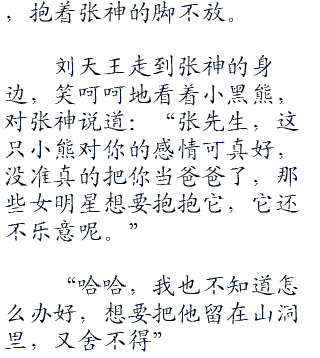 ，抱着张神的脚不放。
刘天王走到张神的身
边，笑呵呵地看着小黑熊，
对张神说道：“张先生，这
只小熊对你的感情可真好，
没准真的把你当爸爸了，那
些女明星想要抱抱它，它还
不乐意呢。”
“哈哈，我也不知道怎
么办好，想要把他留在山洞
里，又舍不得”